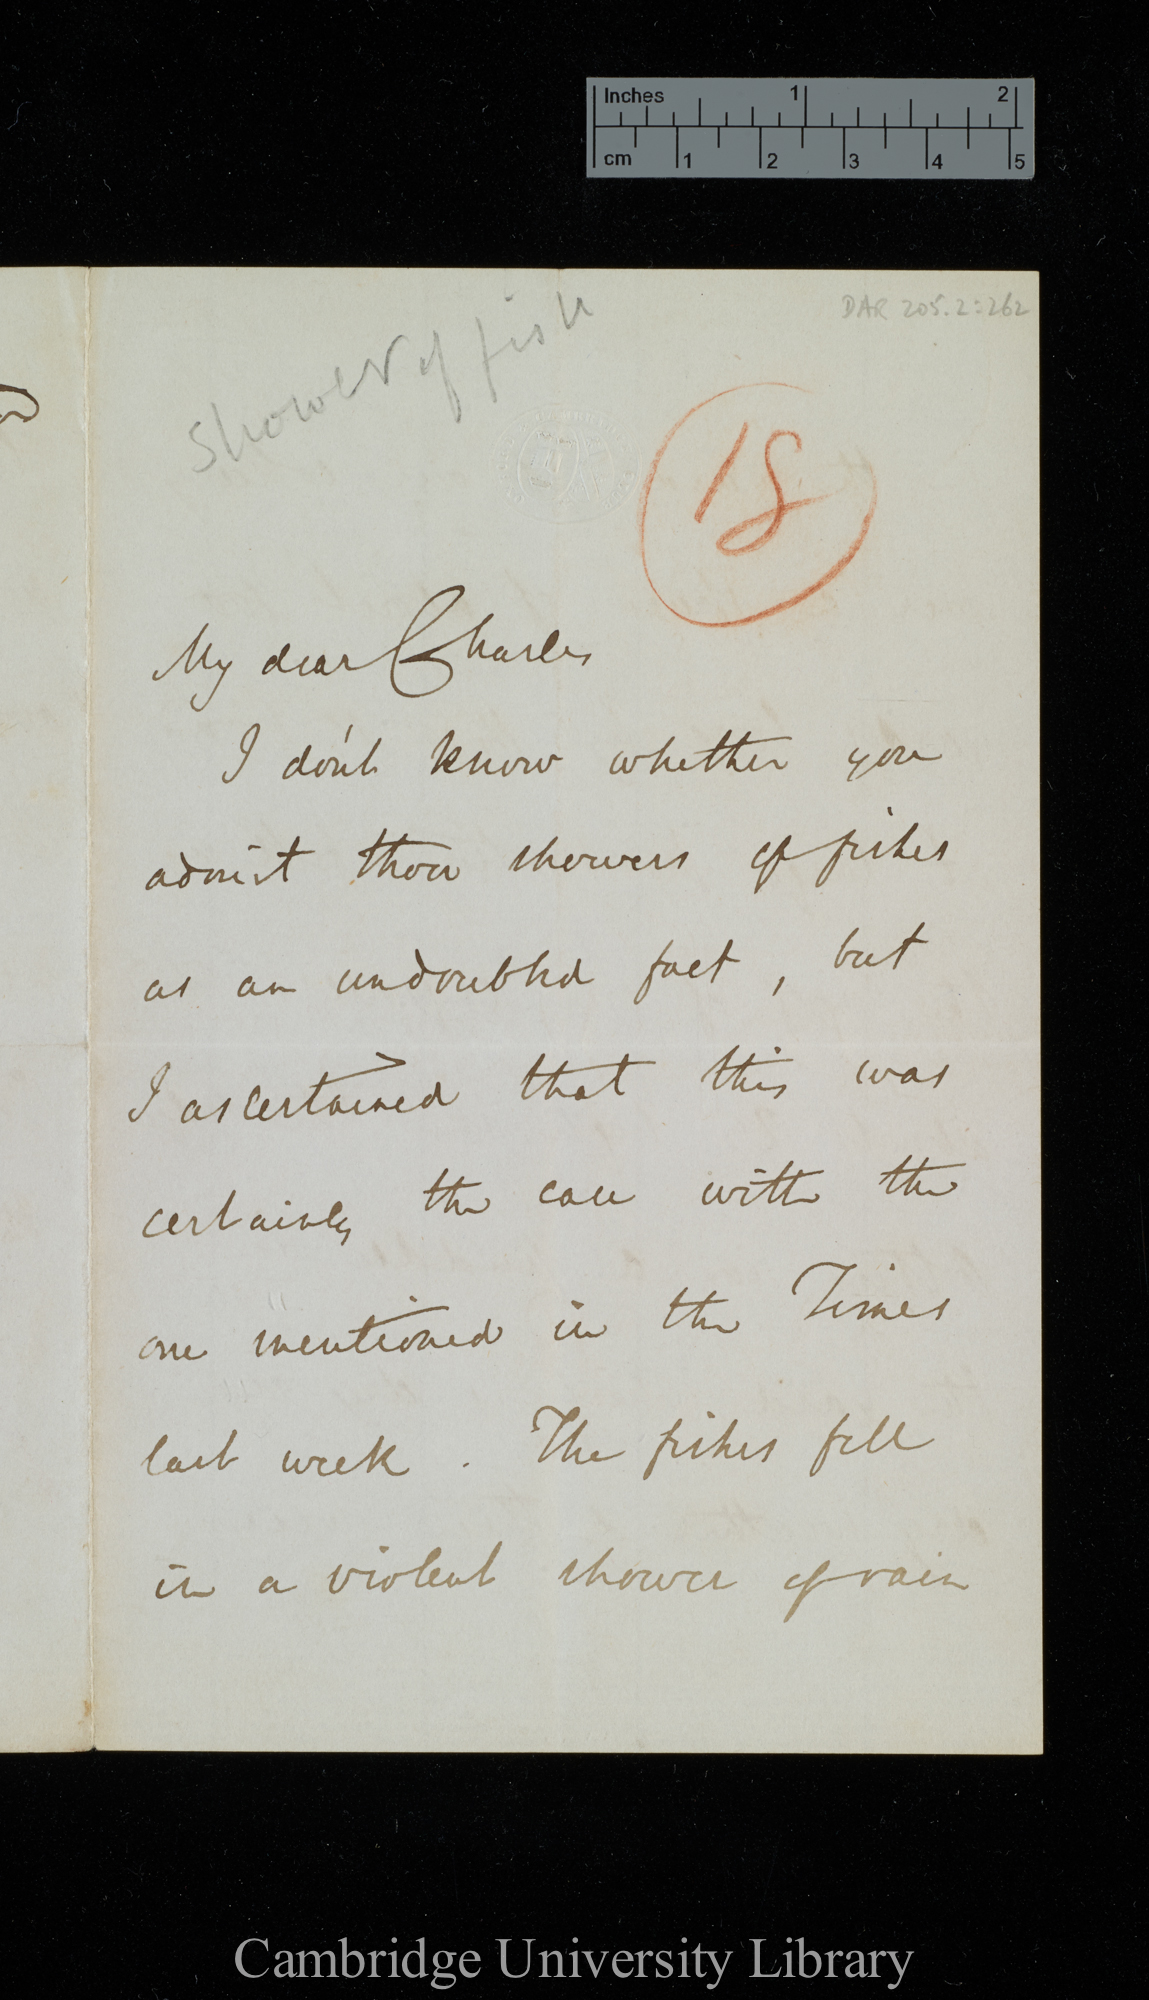 Inches 1 2
cm 1 2 3 4 5
DAR 205.2:262
Shower of fish
18
My dear Charles
I don't know whether you
admit those showers of fishes
as an undoubted fact, but
I ascertained that this was
certainly the case with the
one mentioned in the Times
last week. The fishes fell
in a violent shower of rain
Cambridge University Library